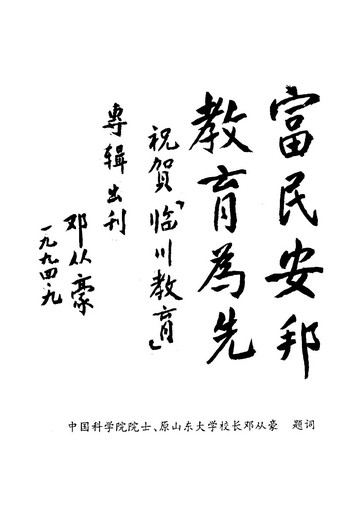 富民安邦
教育為先
祝贺“临川教育”
專辑出刊
邓从豪
一九九四.九
中国科学院院士、原山东大学校长邓从豪 题词